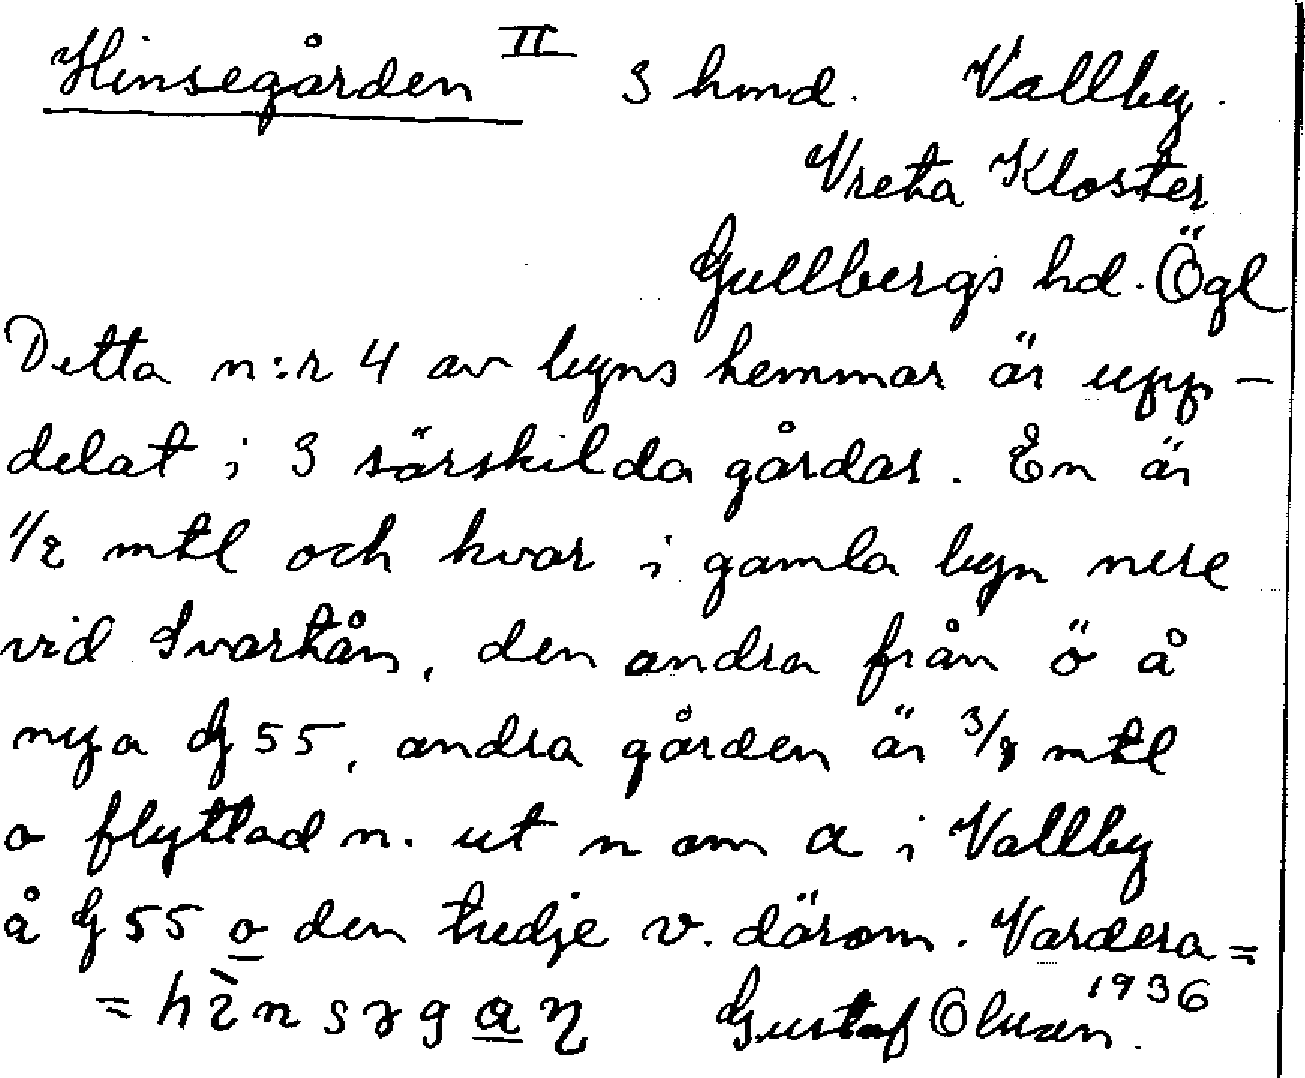 Hinsegården II 3 hmd. Vallby.
Vreta Kloster
Gullbergs hd. Ögl
Detta n:r 4 av byns hemmar är upp-
delat i 3 särskilda gårdar. En är
1/2 mtl och kvar i gamla byn nere
vid Svartån, den andra från ö å
nya G 55, andra gården är 3/8 mtl
o flyttad n. ut n om a i Vallby
å G 55 o den tredje v. därom. Vardera =
= hìnsɂgaη Gustaf Olsson. 1936